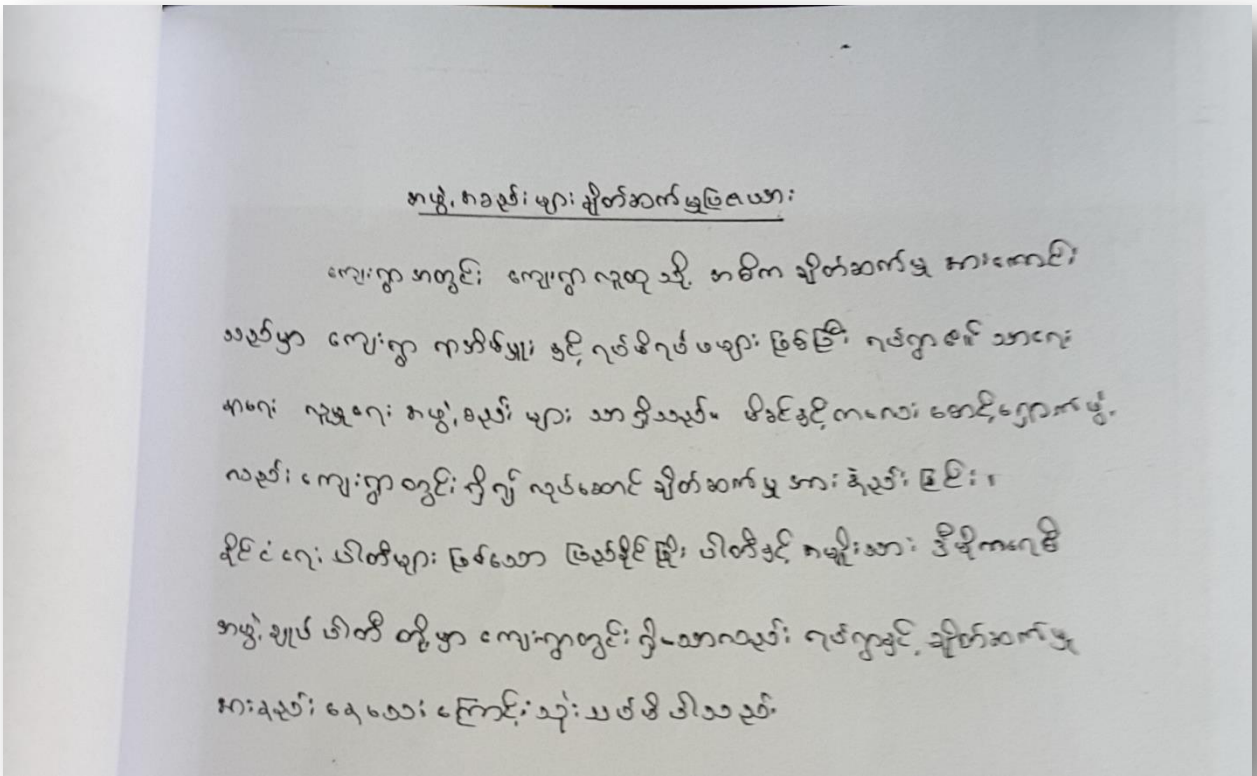 အဖွဲ့အစည်းများချိတ်ဆက်မှုပြဇယား
ကျေးရွာအတွင်း ကျေးရွာလူထုသို့ အဓိက ချိတ်ဆက်မှု အားကောင်း
သည်မှာ ကျေးရွာ ရာအိမ်မှူး နှင့် ရပ်မိရပ်ဖများ ဖြစ်ပြီး ရပ်ရွာဇင် သာရေး
နာရေး လူမှုရေး အဖွဲ့စည်းများ သာရှိသည်။ မိခင်နှင့်ကလေး စောင့်ရှောက်ဖွဲ့
လည်း ကျေးရွာတွင်း ရှိ၍ လုပ်ဆောင် ချိတ်ဆက်မှု အားနဲည်းခြင်း၊
နိုင်ငံရေး ပါတီများ ဖြစ်သော ပြည်ခိုင်ဖြိုး ပါတီနှင့် အမျိုးသား ဒီမိုကရေစီ
အဖွဲ့ချုပ် ပါတီ တို့မှာ ကျေးရွာတွင်း ရှိသော်လည်း ရပ်ရွာနှင့် ချိတ်ဆက်မှု
အားနည်းနေသေးကြောင်းသုံးသပ်မိပါသည်